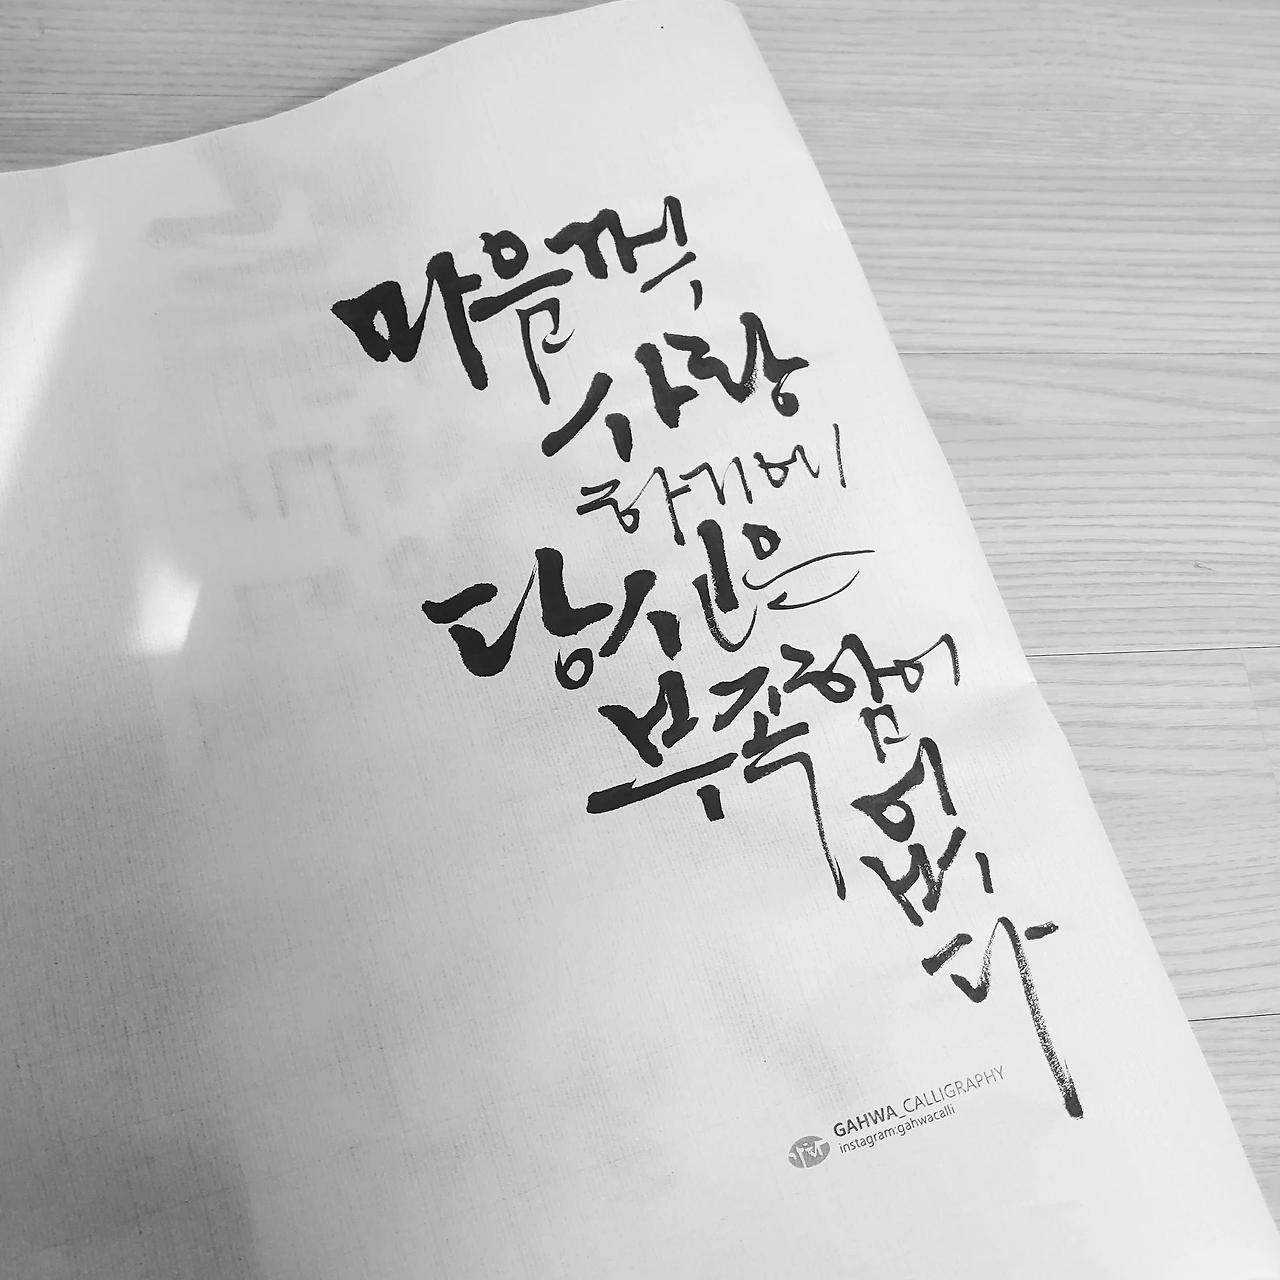 마음껏
사랑
하기에
당신은
부족함이
없
다
GAHWA_CALLIGRAPHY
instagram:gahwacalli